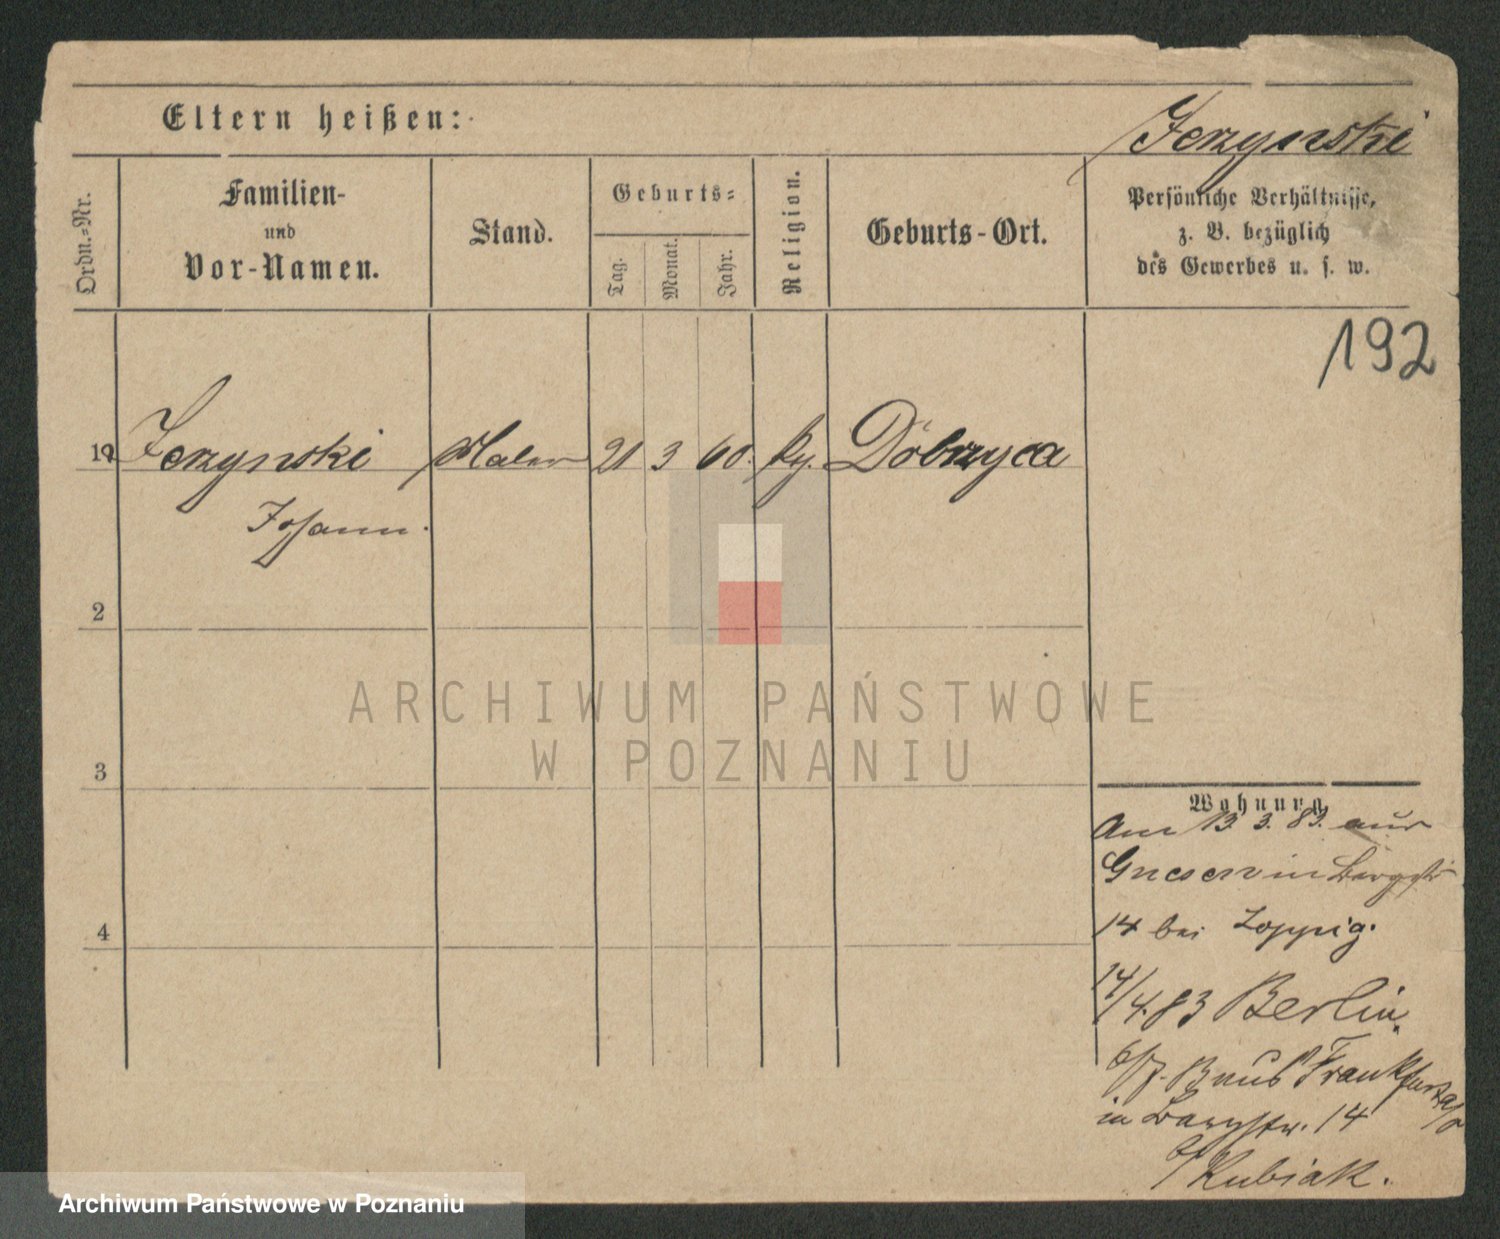 Eltern heißen:
Jerzynski
Ordn.-Nr.
Familien-
und
Vor-Namen.
Stand.
Geburts-
Tag.
Monat.
Jahr.
Religion.
Geburts-Ort.
Persönliche Verhältnisse,
z. B. bezüglich
des Gewerbes u. s. w.
192
1 Jerzynski Maler 21 3 60. Dobrzyca
Johann.
2
3
4
Wohnung
Am 13. 3. 83. aus
Gnesen in Bergstr
14 bei
14/4.83 Berlin.
6/7. aus Frankfurt a/O
in Bergstr. 14
b/ Kubiak.
ARCHIWUM PAŃSTWOWE
W POZNANIU
Archiwum Państwowe w Poznaniu